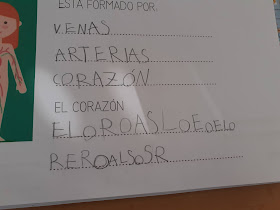 ESTÁ FORMADO POR:
VENAS
ARTERIAS
CORAZÓN
EL CORAZÓN
ELOROASLOEOELO
REROALSOSR